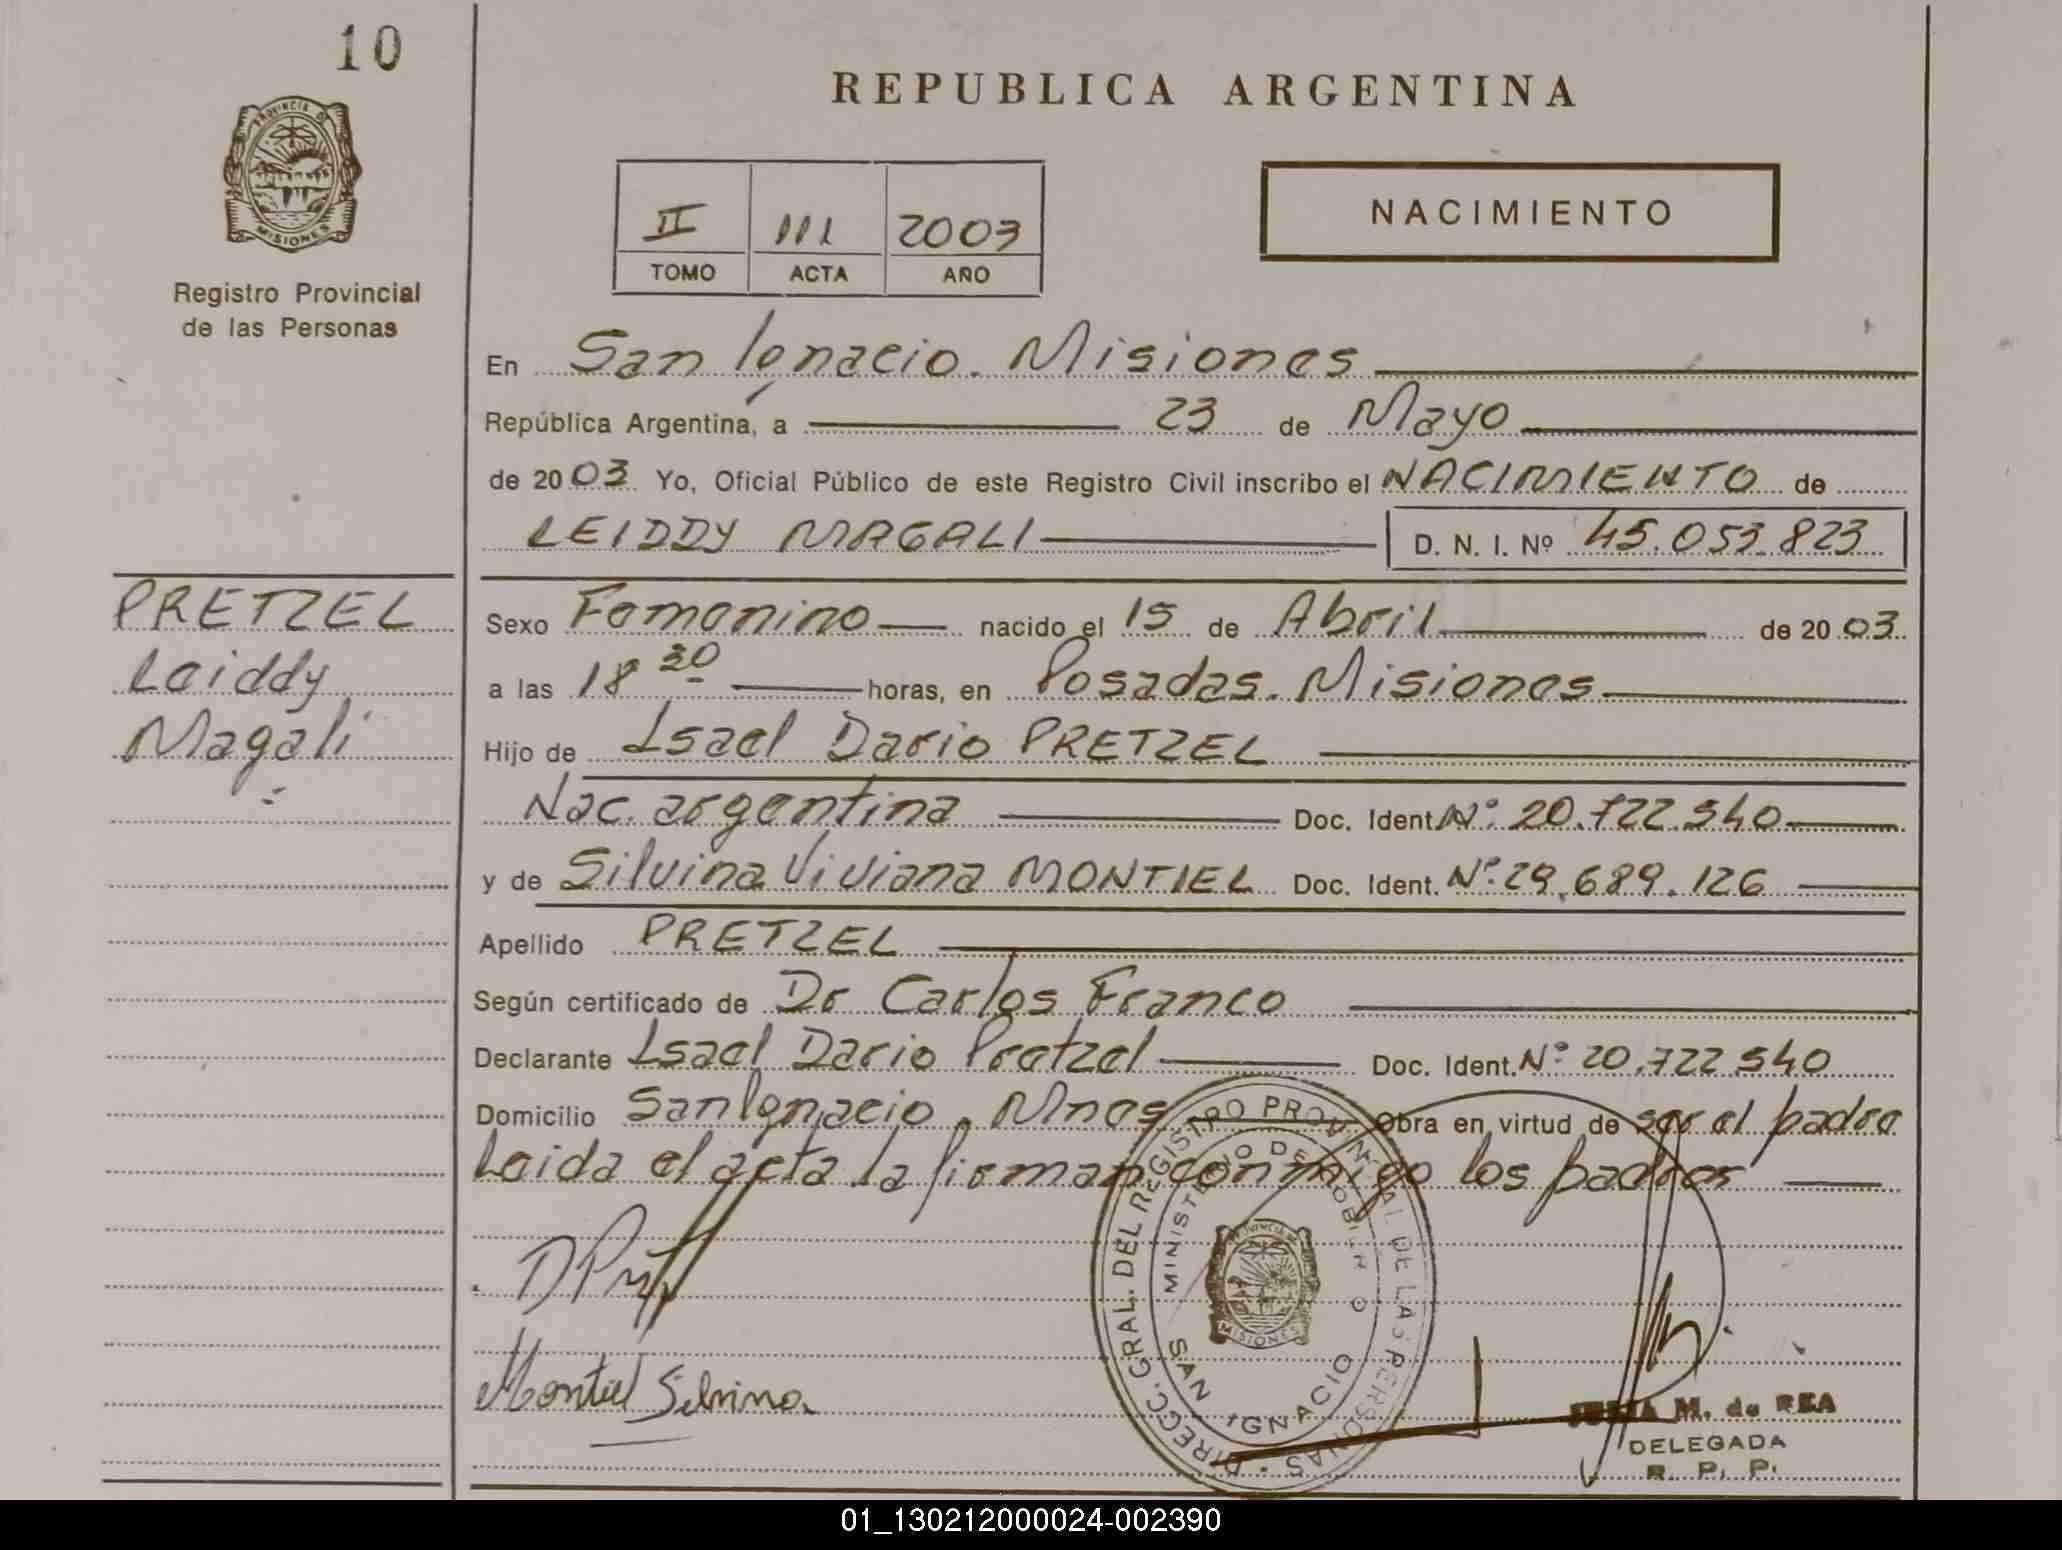 10
REPUBLICA ARGENTINA
PROVINCIA DE
MISIONES
Registro Provincial
de las Personas
II 111 2003
TOMO ACTA AÑO
NACIMIENTO
En San Ignacio. Misiones
República Argentina, a 23 de Mayo
de 2003 Yo, Oficial Público de este Registro Civil inscribo el NACIMIENTO de
LEIDDY MAGALI D. N. I. Nº 45.053.823
PRETZEL
Leiddy
Magali
Sexo Femenino nacido el 15 de Abril de 2003
a las 18 30 horas, en Posadas. Misiones
Hijo de Isael Dario PRETZEL
Nac. argentina Doc. Ident. Nº: 20.722.540
y de Silvina Viviana MONTIEL Doc. Ident. Nº: 29.689.126
Apellido PRETZEL
Según certificado de Dr Carlos Franco
Declarante Isael Dario Pretzel Doc. Ident. Nº: 20.722.540
Domicilio San Ignacio, Mnes Obra en virtud de ser el padre
Leida el acta la firman conmigo los padres
Montiel Silvina
DIRECC. GRAL. DEL REGISTRO PROVINCIAL DE LAS PERSONAS
MINISTERIO DE GOBIERNO
SAN IGNACIO
MISIONES
M. de REA
DELEGADA
R. P. P.
01_130212000024-002390